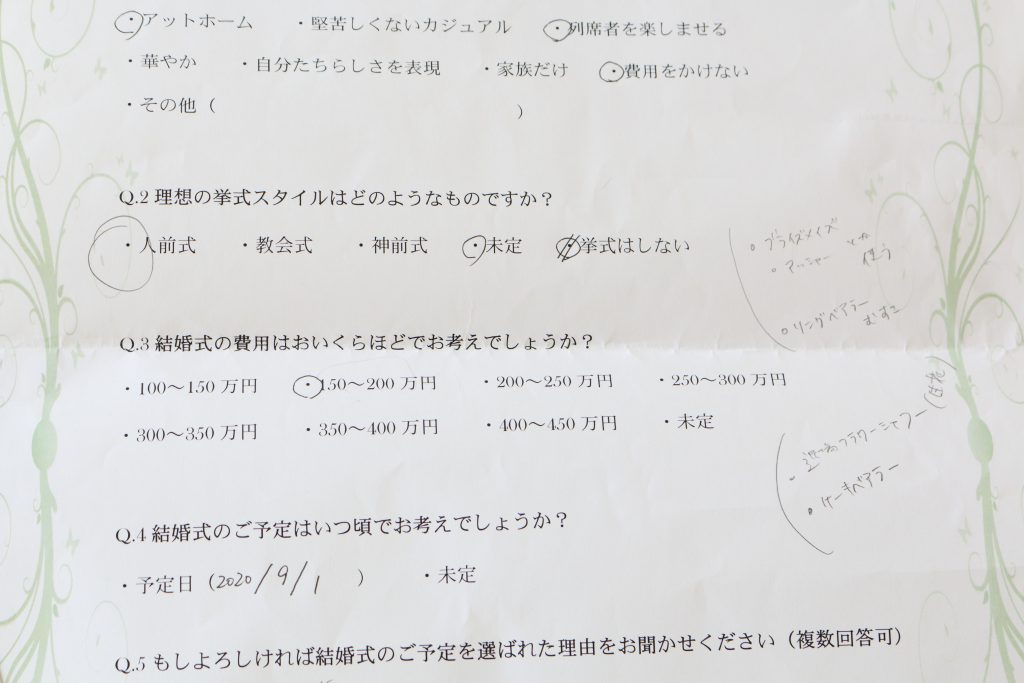 ・アットホーム ・堅苦しくないカジュアル ・列席者を楽しませる
・華やか ・自分たちらしさを表現 ・家族だけ ・費用をかけない
・その他（ ）
Q.2 理想の挙式スタイルはどのようなものですか？
・人前式 ・教会式 ・神前式 ・未定 ・挙式はしない
ブライズメイズ
アッシャー とか
使う
リングベアラー
むすこ
Q.3 結婚式の費用はおいくらほどでお考えでしょうか？
・100〜150 万円 ・150〜200 万円 ・200〜250 万円 ・250〜300 万円
・300〜350 万円 ・350〜400 万円 ・400〜450 万円 ・未定
フラワーシャワー
ケーキベアラー
Q.4 結婚式のご予定はいつ頃でお考えでしょうか？
・予定日（2020/9/1 ） ・未定
Q.5 もしよろしければ結婚式のご予定を選ばれた理由をお聞かせください（複数回答可）